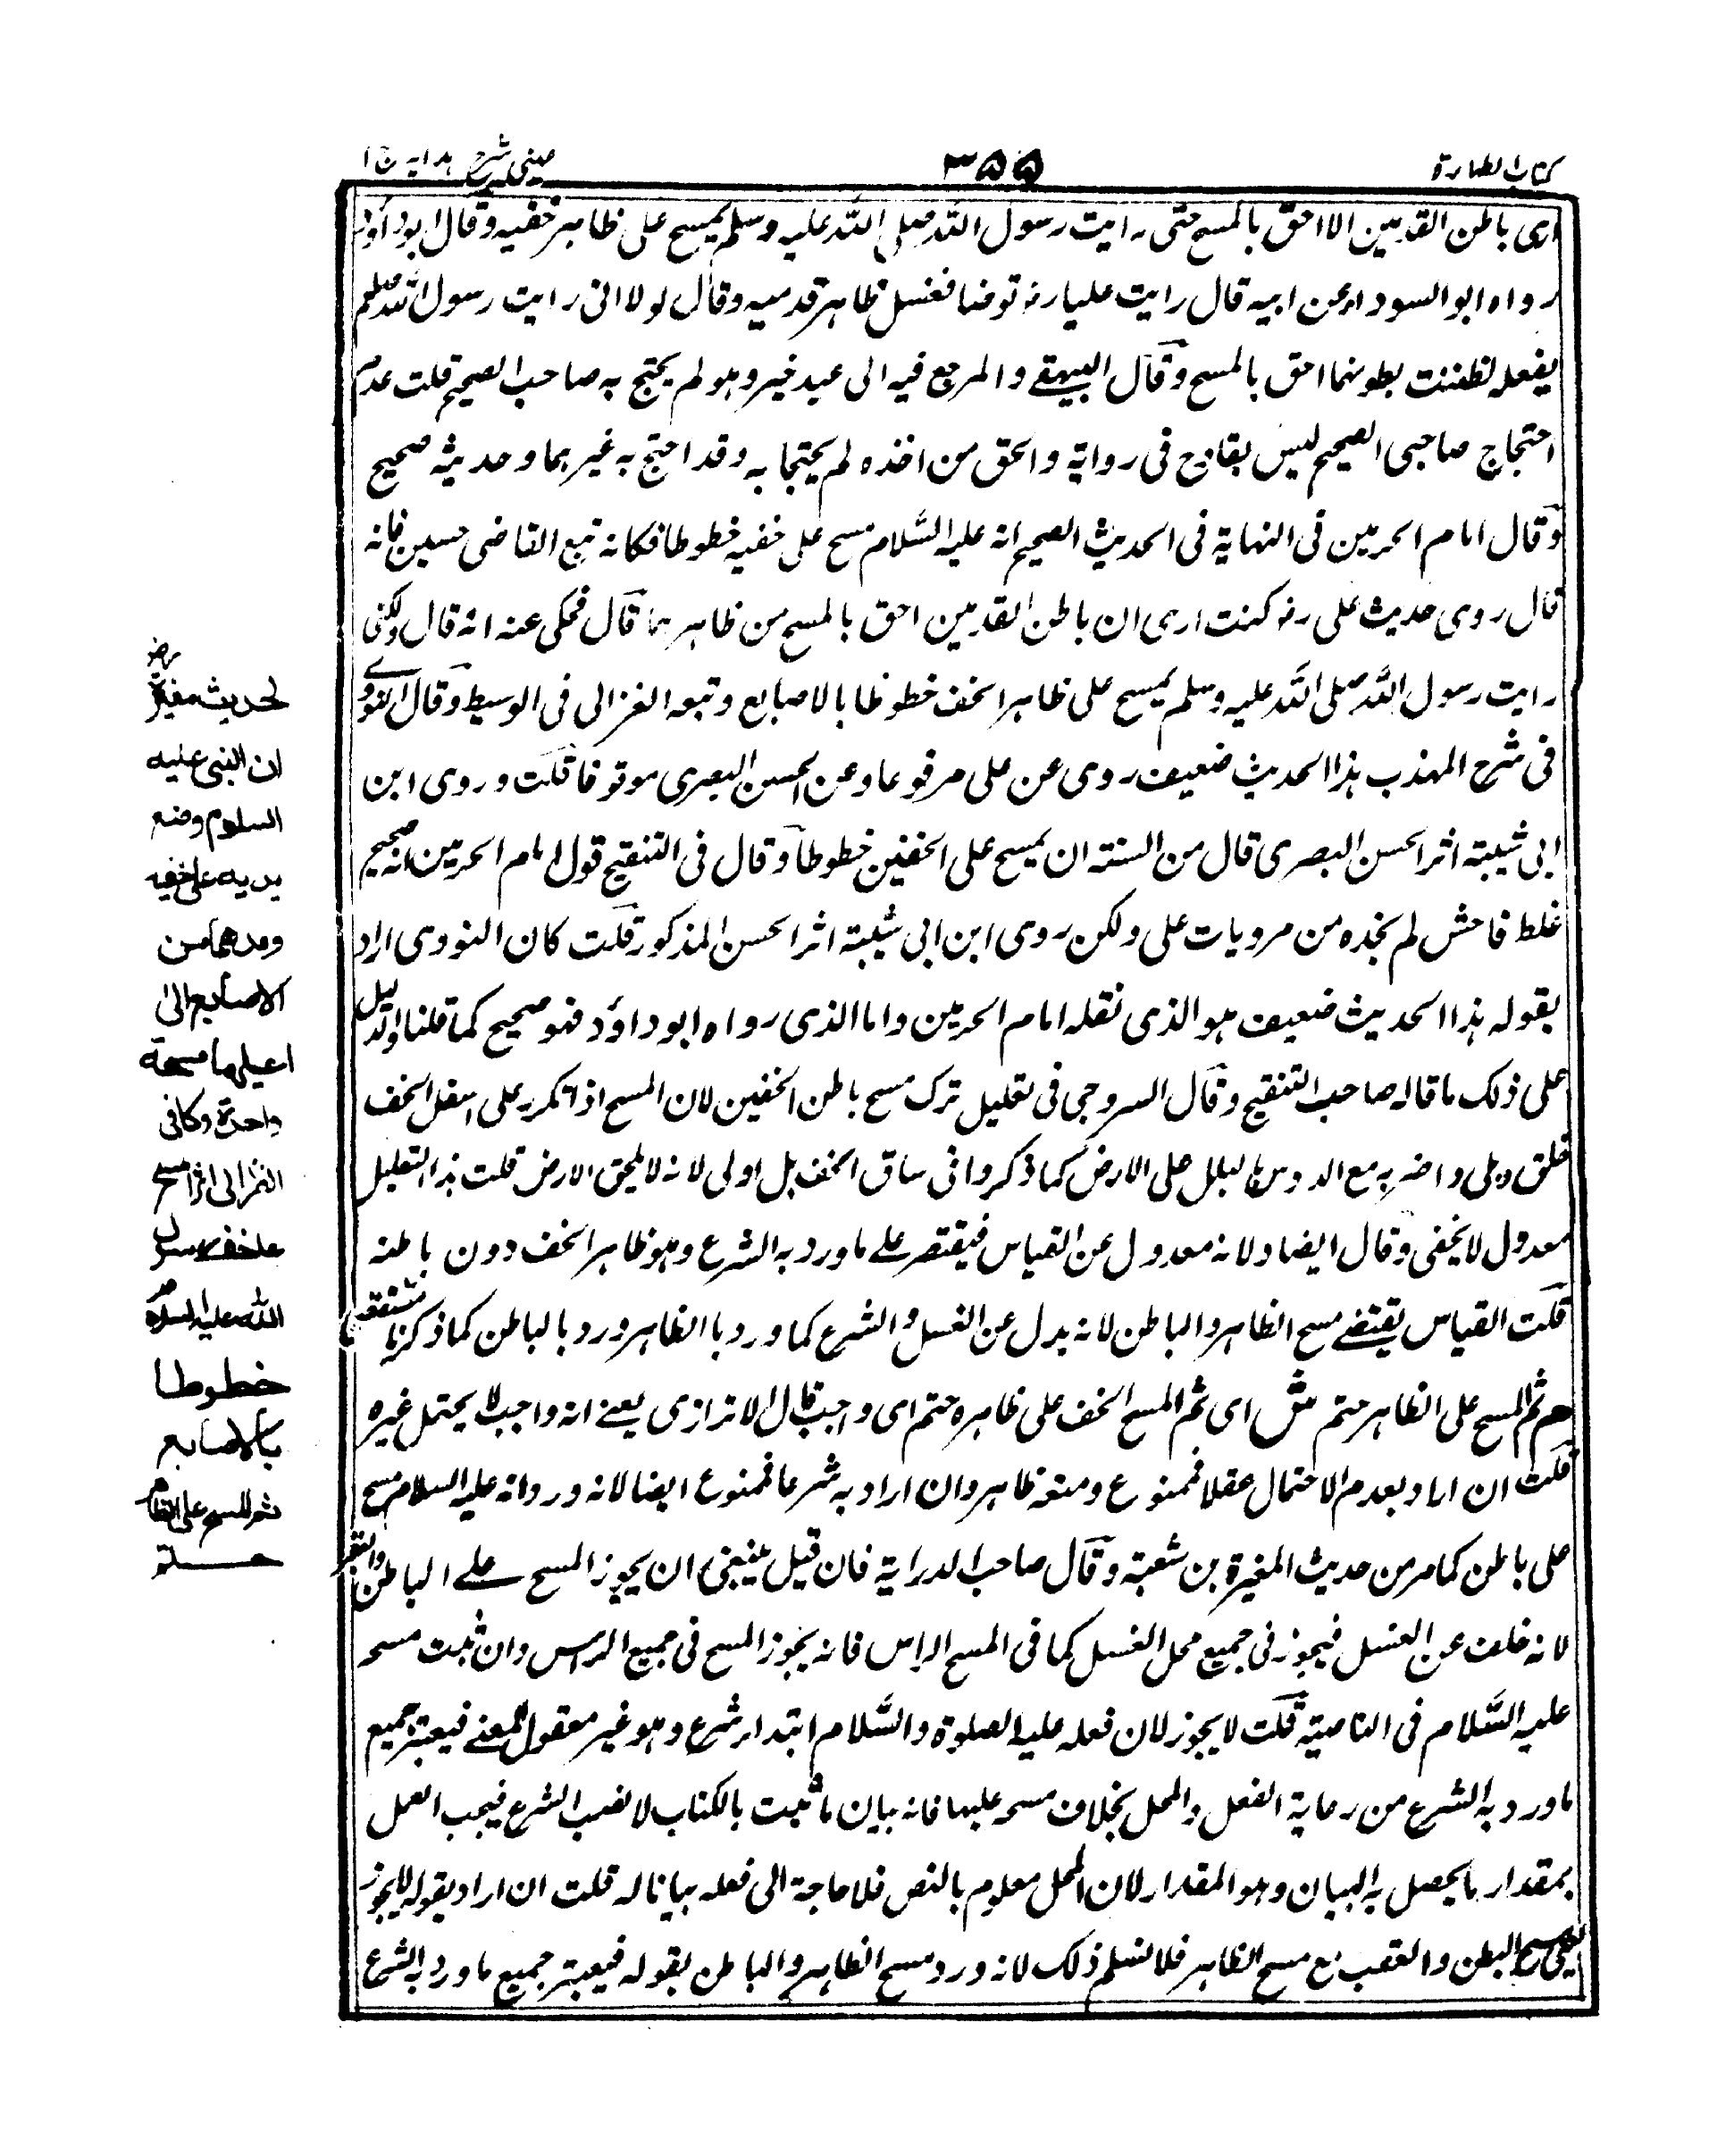 كتاب الطهارة
٣٥٥
عينى شرح هدايه ج ١
ارى باطن القدمين الا احق بالمسح حتى رايت رسول الله صلى الله عليه وسلم يمسح على ظاهر خفيه وقال ابو داؤد
رواه ابو السوداء عن ابيه قال رايت عليا رضه توضا فغسل ظاهر قدميه وقال لولا انى رايت رسول الله صلعم
يفعله لظننت بطونهما احق بالمسح وقال البيهقے والمرجع فيه الى عبد خير وهو لم يحتج به صاحب الصحيح قلت عدم
احتجاج صاحبى الصحيح ليس بقادح فى رواية والحق من اخذه لم يحتجا به وقد احتج به غيرهما وحديثه صحيح
وقال امام الحرمين فى النهاية فى الحديث الصحيح انه عليه السلام مسح على خفيه خطوطا فكانه تبع القاضى حسين فانه
قال روى حديث على رضه كنت ارى ان باطن القدمين احق بالمسح من ظاهرهما قال فحكى عنه انه قال ولكنى
رايت رسول الله صلى الله عليه وسلم يمسح على ظاهر الخف خطوطا بالاصابع وتبعه الغزالى فى الوسيط وقال النووے
فى شرح المهذب هذا الحديث ضعيف روى عن على مرفوعا وعن الحسن البصرى موقوفا قلت وروى ابن
ابى شيبة اثر الحسن البصرى قال من السنة ان يمسح على الخفين خطوطا وقال فى التنقيح قول امام الحرمين انه صحيح
غلط فاحش لم نجده من مرويات على ولكن روى ابن ابى شيبة اثر الحسن المذكور قلت كان النووى اراد
بقوله هذا الحديث ضعيف هو الذى نقله امام الحرمين واما الذى رواه ابو داؤد فهو صحيح كما قلنا والدليل
على ذلك ما قاله صاحب التنقيح وقال السروجى فى تعليل ترك مسح باطن الخفين لان المسح اذا تكرر على اسفل الخف
خلق وبلى واضر به مع الدوس بالبلل على الارض كما ذكروا فى ساق الخف بل اولى لانه لا يلحق الارض قلت هذا التعليل
معدول لا يخفى وقال ايضا ولانه معدول عن القياس فيقتصر علے ما ورد به الشرع وهو ظاهر الخف دون باطنه
قلت القياس يقتضے مسح الظاهر والباطن لانه بدل عن الغسل والشرع كما ورد با الظاهر ورد بالباطن كما ذكرنا
هم ثم المسح على الظاهر حتم ش اى ثم المسح الخف على ظاهره حتم اى واجب قال الاترازى يعنے انه واجب لا يحتمل غيره
قلت ان اراد بعدم الاحتمال عقلا فممنوع ومنعه ظاهر وان اراد به شرعا فممنوع ايضا لانه ورد انه عليه السلام مسح
على باطن كما مر من حديث المغيرة بن شعبة وقال صاحب الدراية فان قيل ينبغى ان يجوز المسح علے الباطن والعقب
لانه خلف عن الغسل فيجوز فى جميع محل الغسل كما فى المسح الراس فانه يجوز المسح فى جميع الراس وان ثبت مسحه
عليه السلام فى الناصية قلت لا يجوز لان فعله عليه الصلوة والسلام ابتداء شرع وهو غير معقول المعنے فيعتبر جميع
ما ورد به الشرع من رعاية الفعل والمحل بخلاف مسحه عليها فانه بيان ما ثبت بالكتاب لا نصب الشرع فيجب العمل
بمقدار ما يحصل به البيان وهو المقدار لان المحل معلوم بالنص فلا حاجة الى فعله بيانا له قلت ان اراد بقوله لا يجوز
البطن والعقب مع مسح الظاهر فلا نسلم ذلك لانه ورد مسح الظاهر والباطن بقوله فيعتبر جميع ما ورد به الشرع
لحديث مغيرة رضه
ان النبى عليه
السلام وضع
يديه على خفيه
ومدهما من
الاصابع الى
اعليهما مسحة
واحدة وكانى
انظر الى اثر المسح
على خف رسول
الله عليه السلام
خطوطا
بالاصابع
ثم المسح على الظاهر
حتم